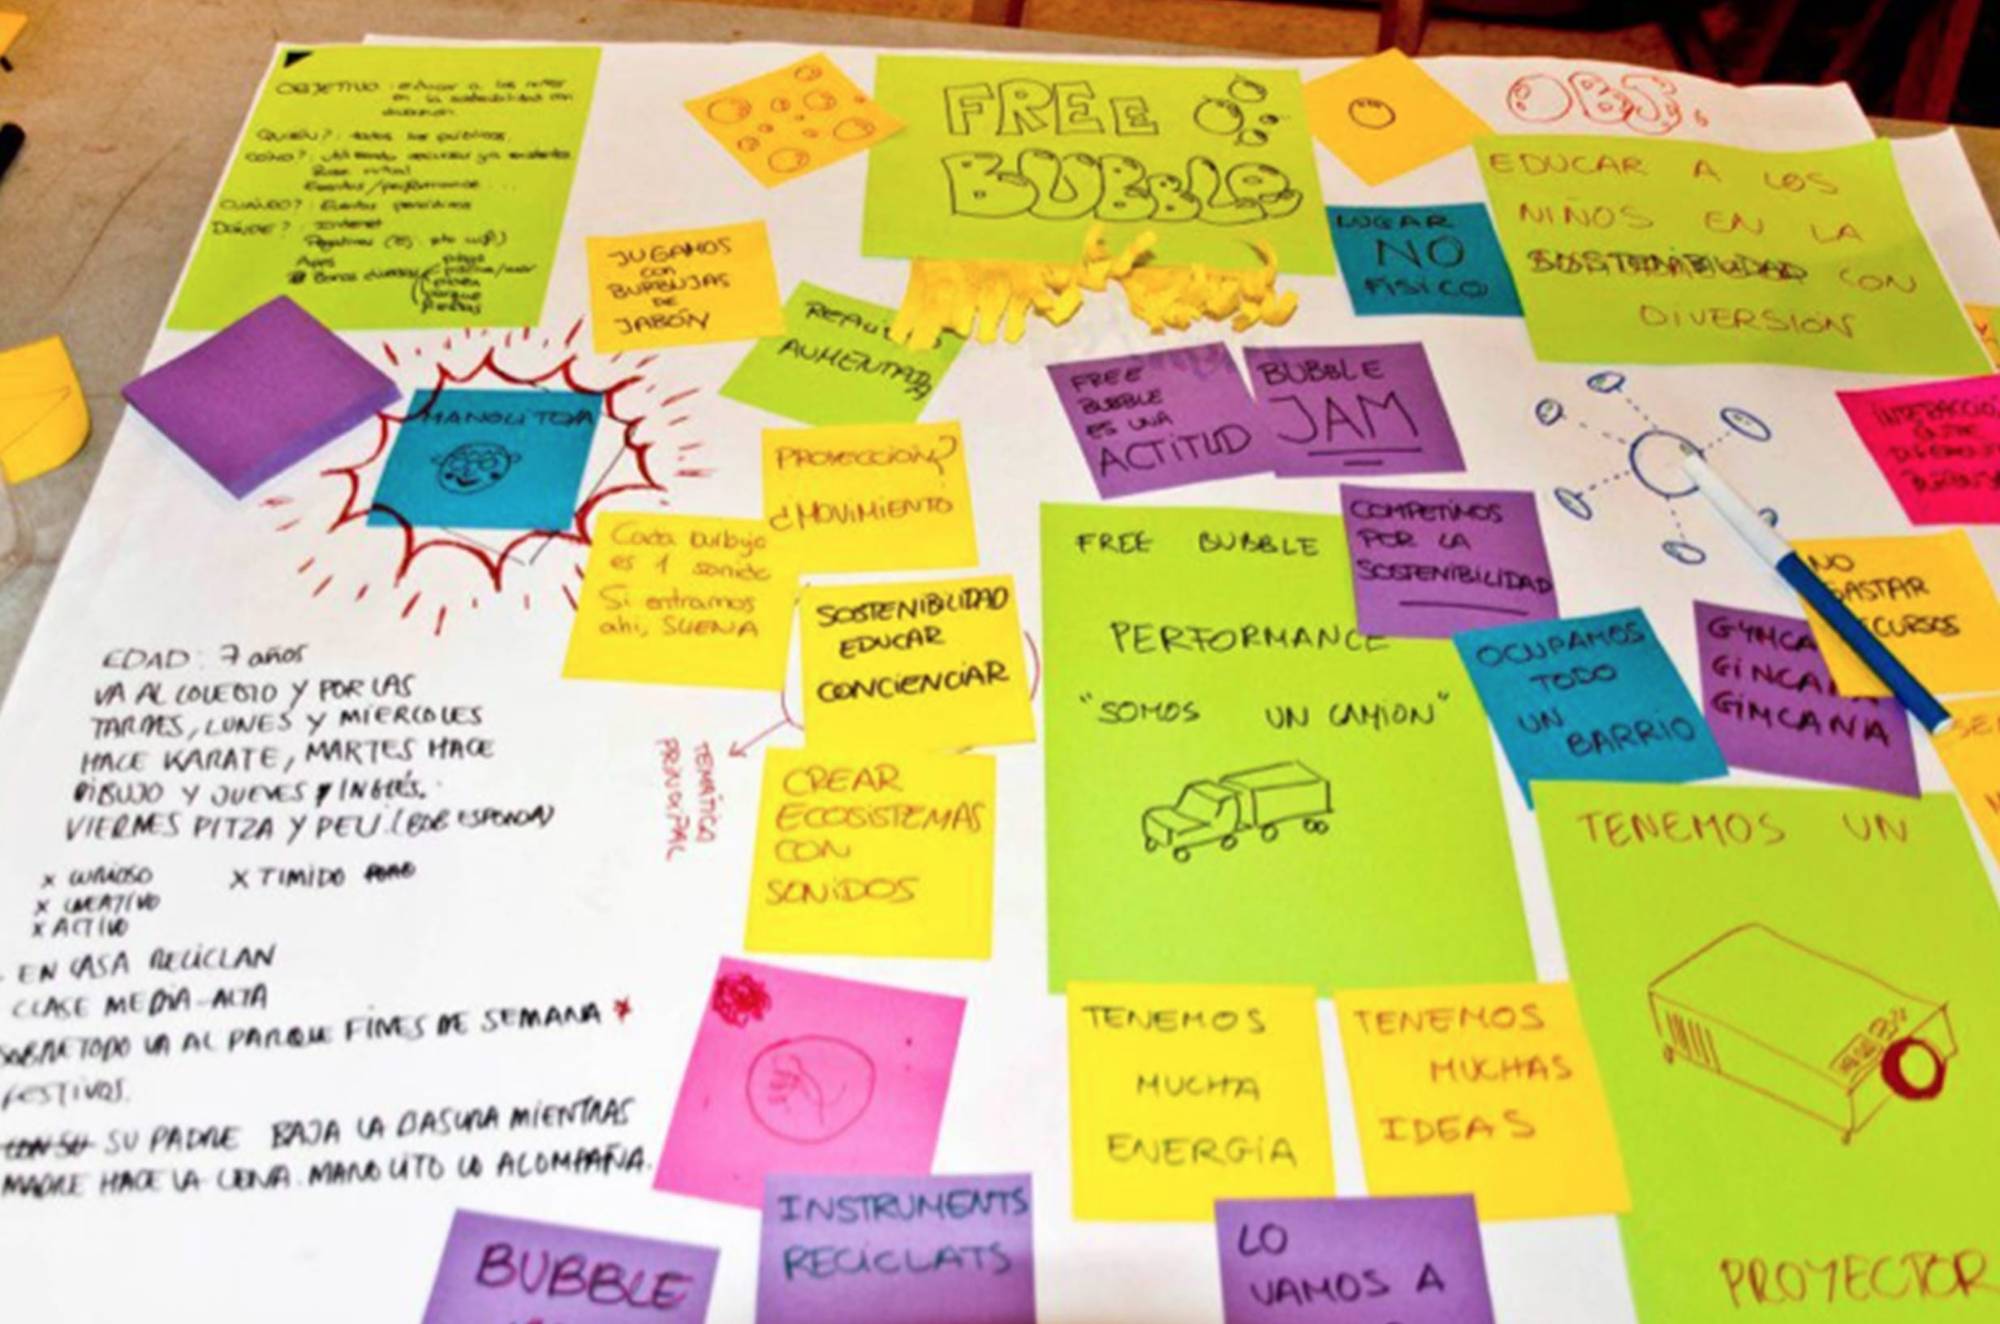 OBJETIVO: educar a los niños
en la sostenibilidad con
diversión
QUIÉN?: todos los públicos.
COMO?: utilizando recursos ya existentes
Base virtual
Eventos/performance...
CUÁNDO?: Eventos periódicos
DÓNDE?: Internet
Apps
FREE
BUBBLE
OBJ.
EDUCAR A LOS
NIÑOS EN LA
SOSTENIBILIDAD CON
DIVERSIÓN
LUGAR
NO
FÍSICO
JUGAMOS
con
BURBUJAS
DE
JABÓN
AUMENTADA
MANOLITO
FREE
BUBBLE
ES UNA
ACTITUD
BUBBLE
JAM
PROYECCIÓN?
¿MOVIMIENTO
Cada burbuja
es 1 sonido
Si entramos
ahí, SUENA
SOSTENIBILIDAD
EDUCAR
CONCIENCIAR
TEMÁTICA
PRINCIPAL
CREAR
ECOSISTEMAS
CON
SONIDOS
FREE BUBBLE
PERFORMANCE
"SOMOS UN CAMION"
COMPETIMOS
POR LA
SOSTENIBILIDAD
OCUPAMOS
TODO
UN
BARRIO
GIMCANA
NO
TENEMOS UN
PROYECTOR
TENEMOS
MUCHA
ENERGÍA
TENEMOS
MUCHAS
IDEAS
EDAD: 7 años
VA AL COLEGIO Y POR LAS
TARDES, LUNES Y MIERCOLES
HACE KARATE, MARTES HACE
DIBUJO Y JUEVES INGLÉS.
VIERNES PITZA Y PELI. (BOB ESPONJA)
x CURIOSO x TIMIDO
x CREATIVO
x ACTIVO
EN CASA RECICLAN
CLASE MEDIA-ALTA
SOBRETODO VA AL PARQUE FINES DE SEMANA *
FESTIVOS.
SU PADRE BAJA LA BASURA MIENTRAS
MADRE HACE LA CENA. MANOLITO LO ACOMPAÑA.
BUBBLE
INSTRUMENTS
RECICLATS
LO
VAMOS A